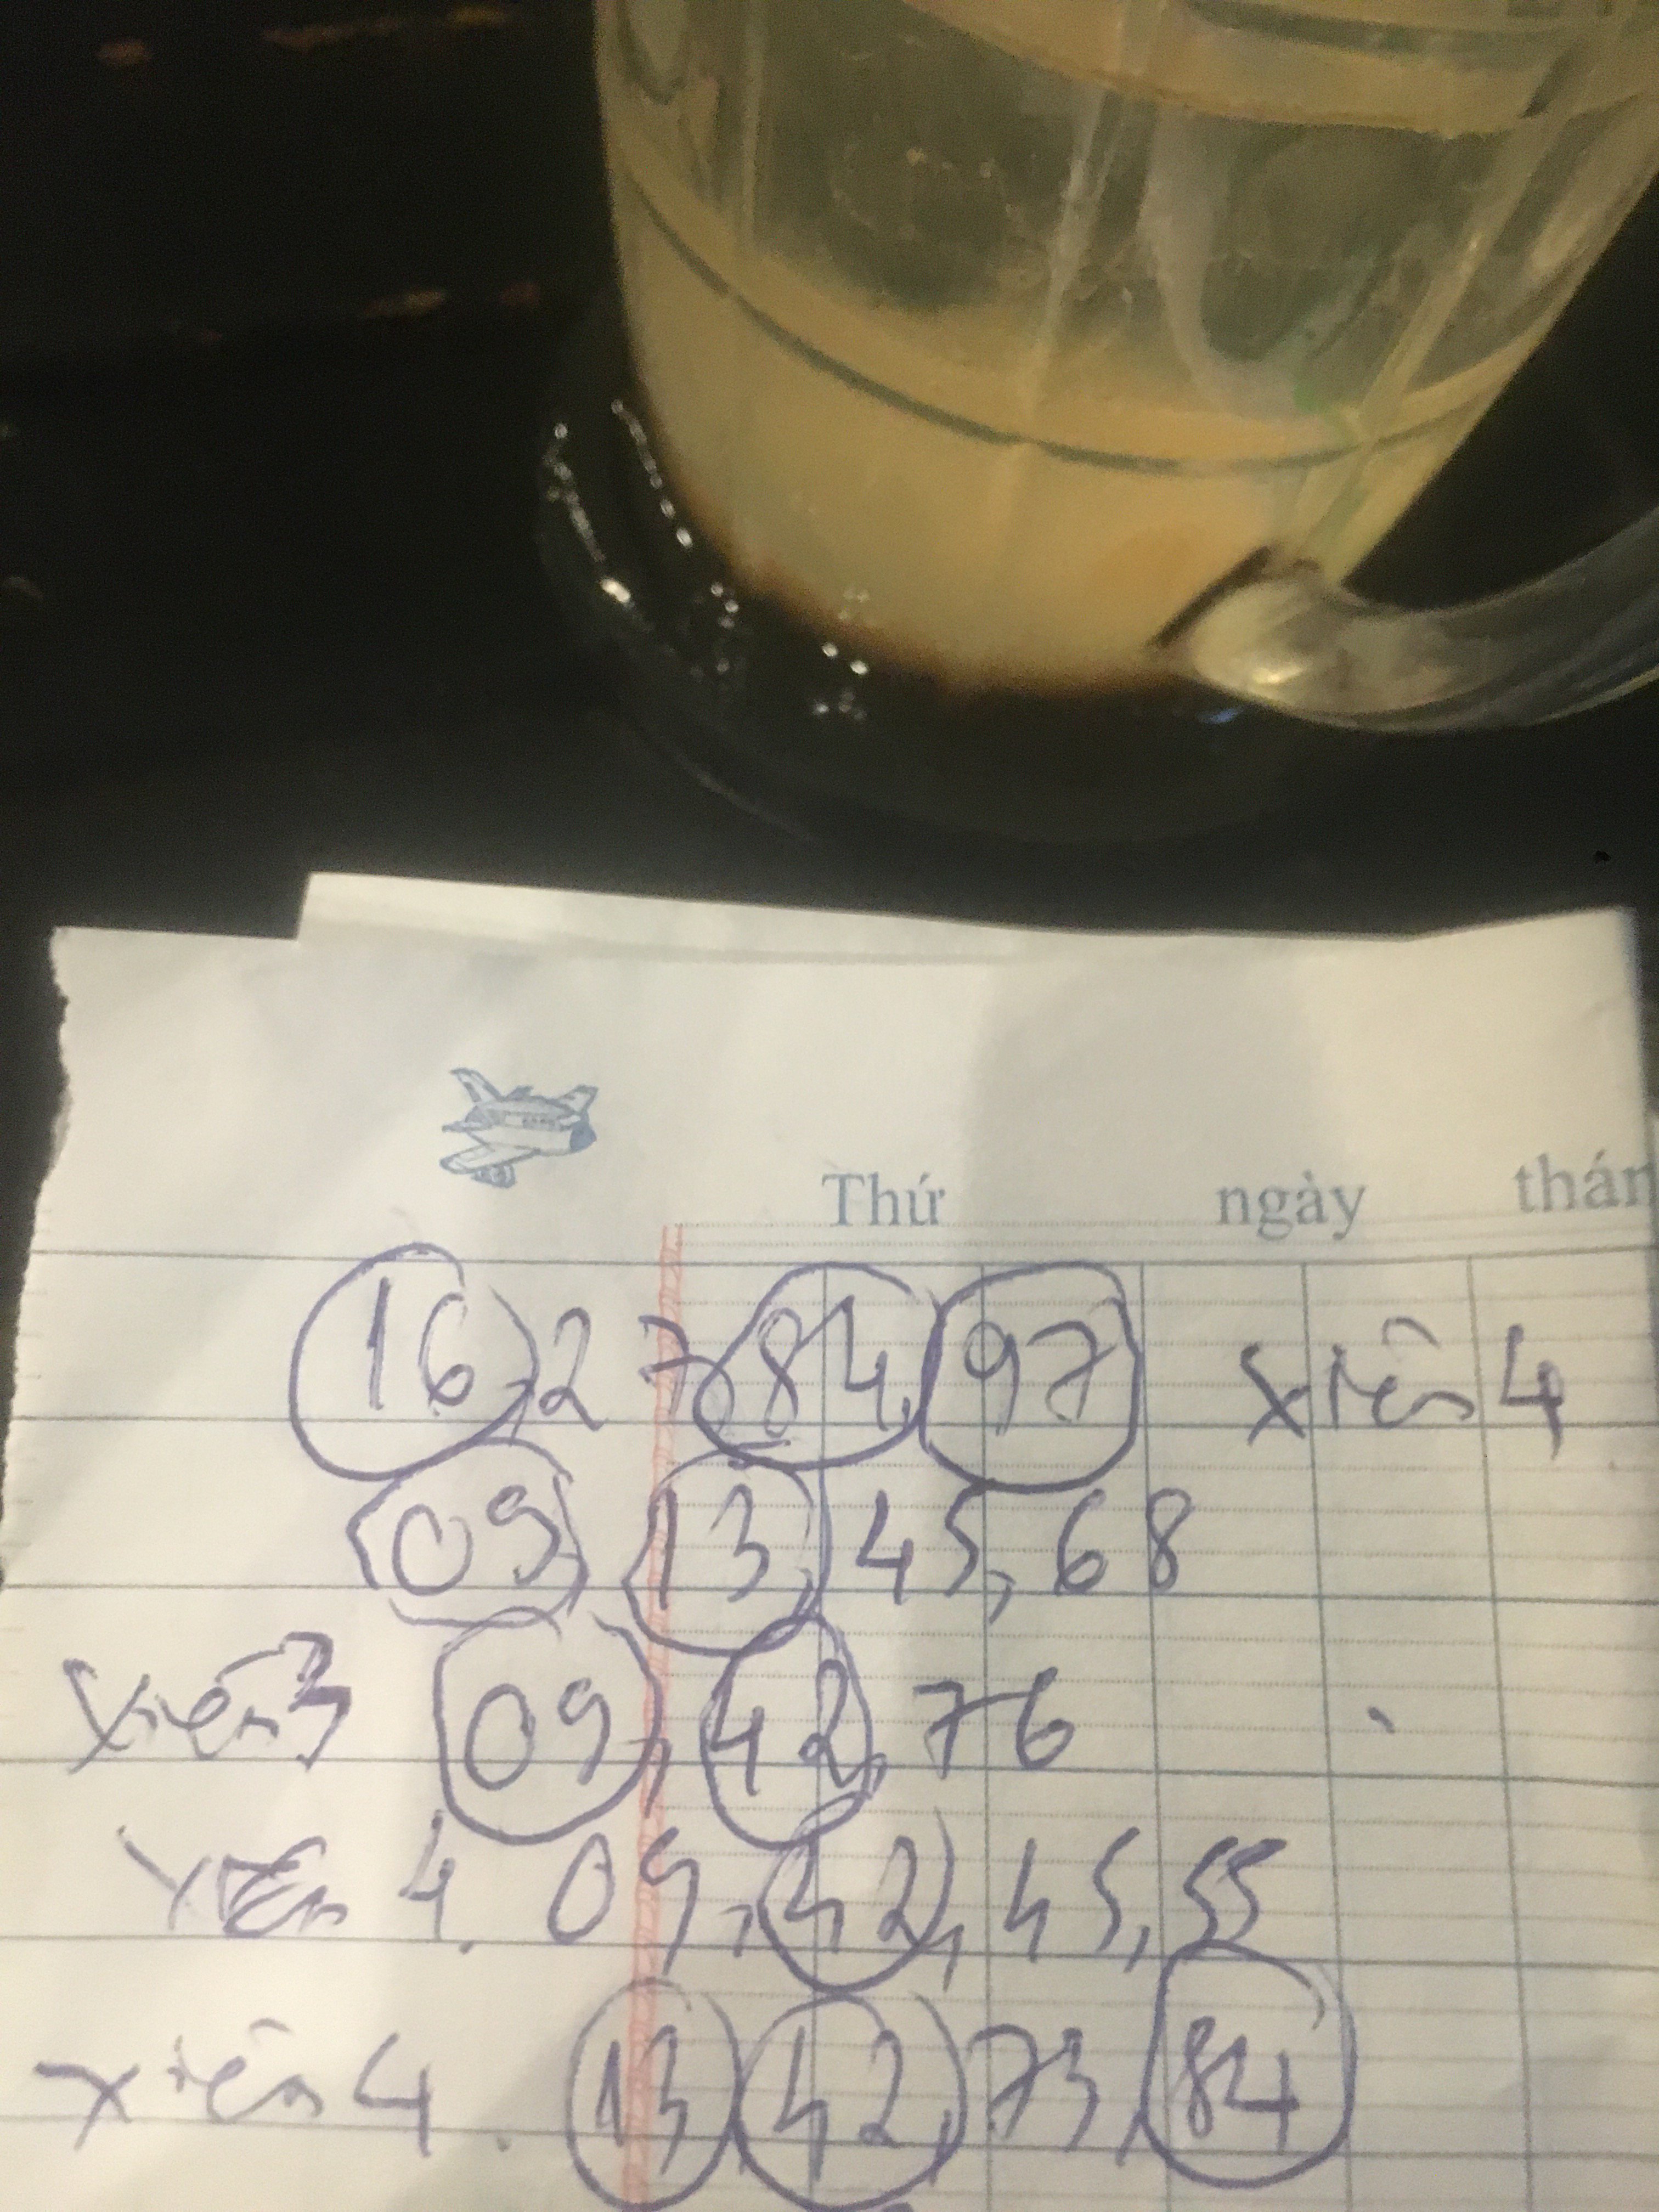 Thứ ngày thán
16, 27 84, 97 xiên 4
09, 13, 45, 68
Xiên 3 09, 42, 76
xiên 4. 09, 42, 45, 55
xiên 4. 13, 42, 73, 84